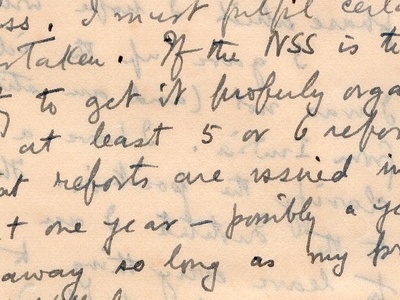 ss. I must fulfil certa
rtaken. If the NSS is t
to get it properly orga
at least 5 or 6 repor
at reports are issued in
+ one year – possibly a ye
away so long as my p